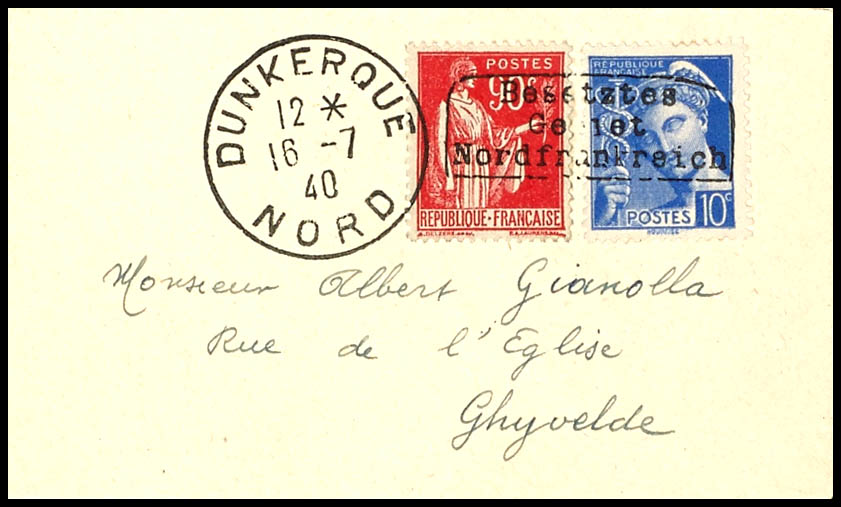 DUNKERQUE
12 *
16 -7
40
NORD
POSTES
90c
REPUBLIQUE·FRANÇAISE
RÉPUBLIQUE
FRANÇAISE
POSTES 10c
Besetztes
Gebiet
Nordfrankreich
Monsieur Albert Gianolla
Rue de l'Eglise
Ghyvelde